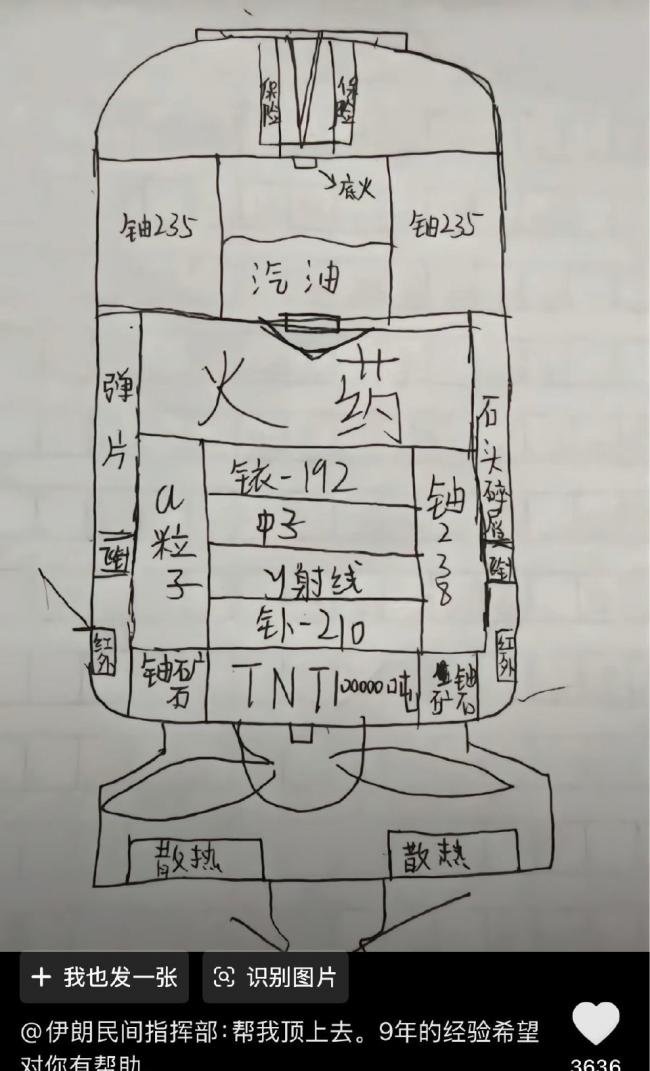 保险
保险
底火
铀235
铀235
汽油
火药
弹片
石头碎屑
铱-192
中子
γ射线
钋-210
α粒子
铀238
红外
红外
铀矿石
TNT100000吨
铀矿石
散热
散热
+ 我也发一张
识别图片
@伊朗民间指挥部:帮我顶上去。9年的经验希望
对你有帮助
3636